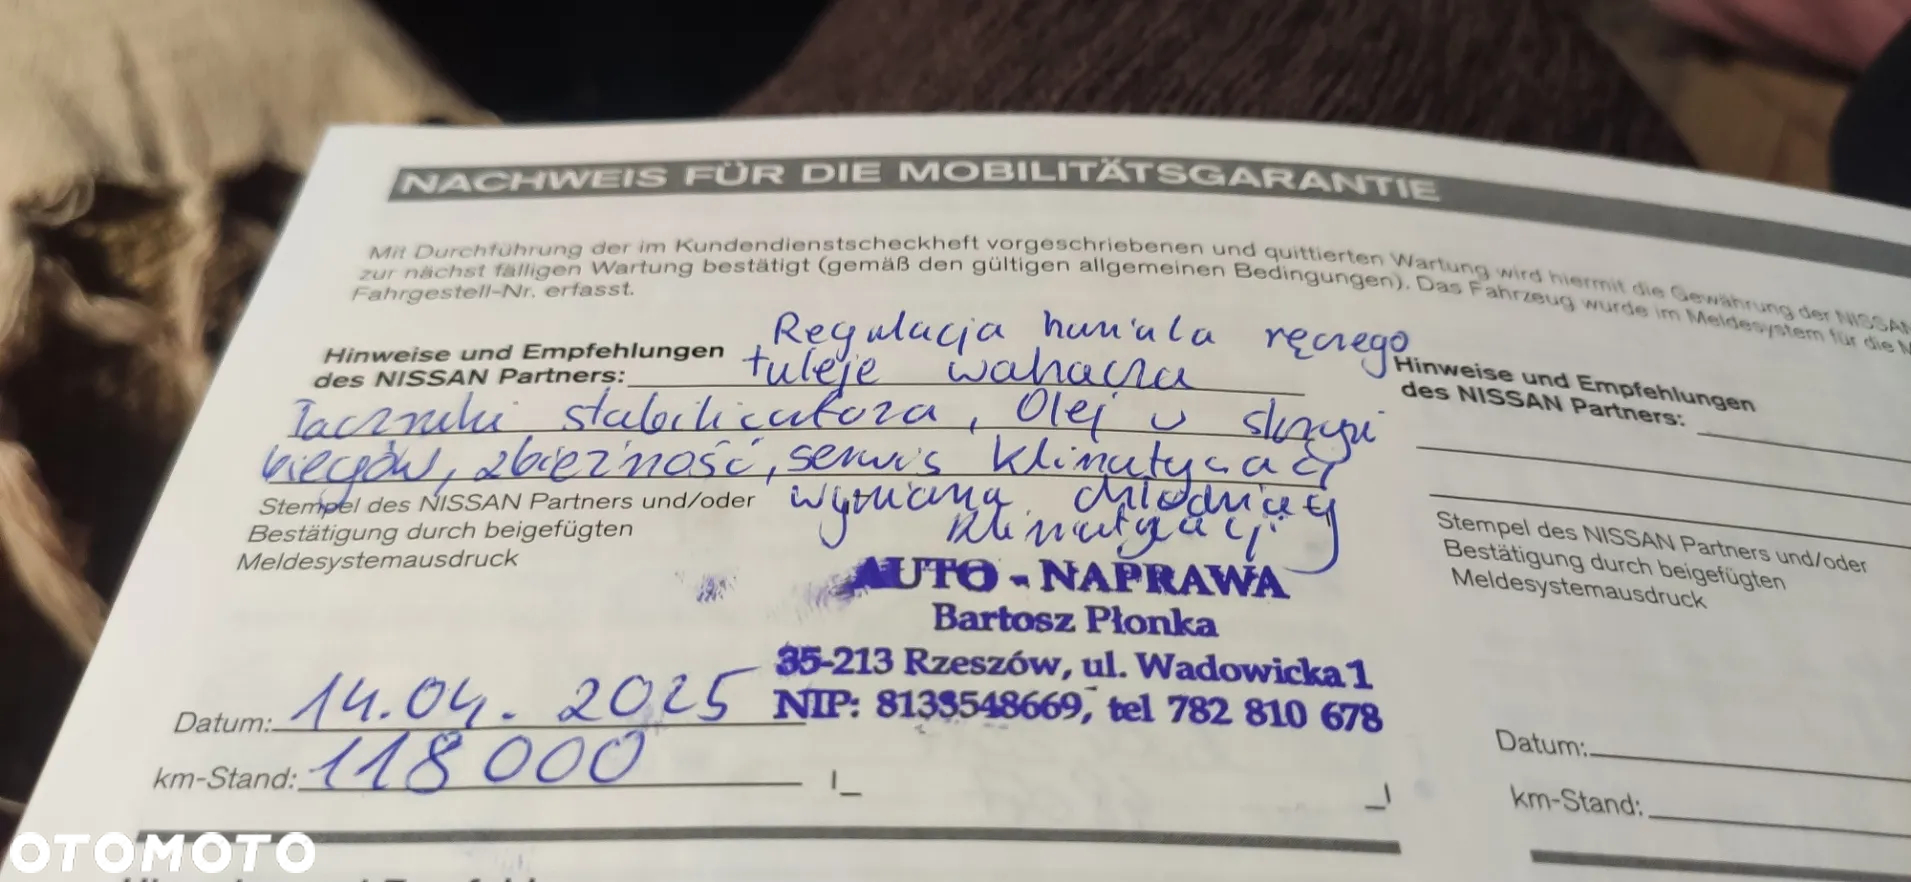 NACHWEIS FÜR DIE MOBILITÄTSGARANTIE
Mit Durchführung der im Kundendienstscheckheft vorgeschriebenen und quittierten Wartung wird hiermit die Gewährung der NISSAN
zur nächst fälligen Wartung bestätigt (gemäß den gültigen allgemeinen Bedingungen). Das Fahrzeug wurde im Meldesystem für die M
Fahrgestell-Nr. erfasst.
Regulacja hamulca ręcznego
Hinweise und Empfehlungen
des NISSAN Partners: tuleje wahacza
łączniki stabilizatora, Olej w skrzyni
biegów, zbieżność, serwis klimatyzacji
wymiana chłodnicy
klimatyzacji
Stempel des NISSAN Partners und/oder
Bestätigung durch beigefügten
Meldesystemausdruck
AUTO - NAPRAWA
Bartosz Płonka
35-213 Rzeszów, ul. Wadowicka 1
NIP: 8133548669, tel 782 810 678
Datum: 14.04.2025
km-Stand: 118 000
Hinweise und Empfehlungen
des NISSAN Partners:
Stempel des NISSAN Partners und/oder
Bestätigung durch beigefügten
Meldesystemausdruck
Datum:
km-Stand:
OTOMOTO